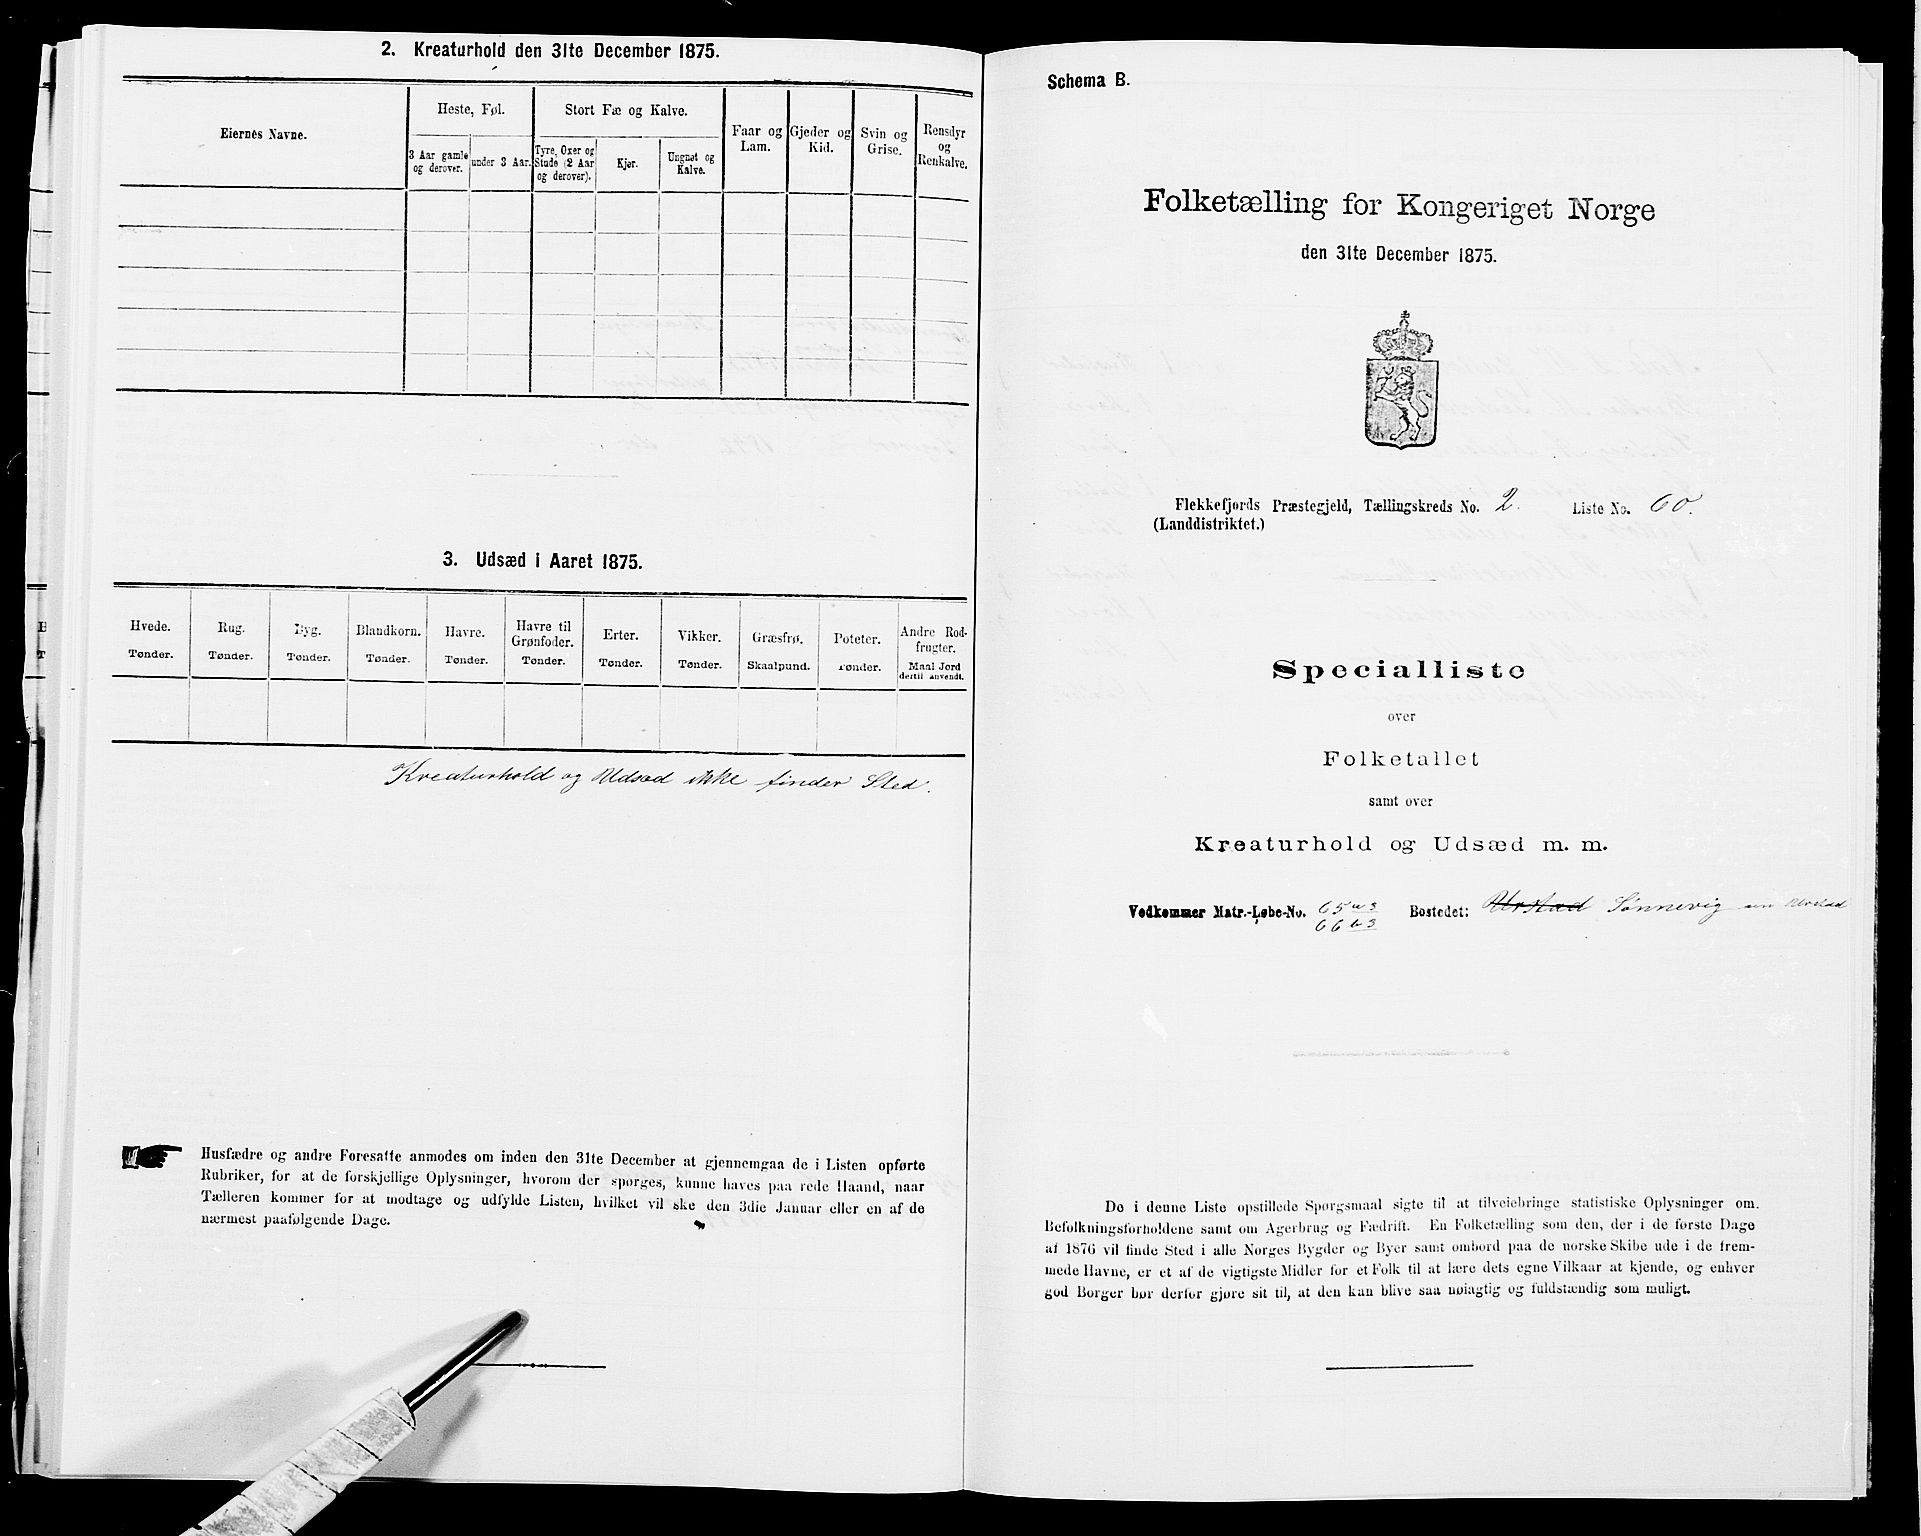 2. Kreaturhold den 31te December 1875.
Eiernes Navne.
Heste, Føl.
Stort Fæ og Kalve.
Faar og Lam.
Gjeder og Kid.
Svin og Grise.
Rensdyr og Renkalve.
3 Aar gamle og derover.
under 3 Aar.
Tyre, Oxer og Stude (2 Aar og derover).
Kjør.
Ungnøt og Kalve.
3. Udsæd i Aaret 1875.
Hvede. Tønder.
Rug. Tønder.
Byg. Tønder.
Blandkorn. Tønder.
Havre. Tønder.
Havre til Grønfoder. Tønder.
Erter. Tønder.
Vikker. Tønder.
Græsfrø. Skaalpund.
Poteter. Tønder.
Andre Rodfrugter. Maal Jord dertil anvendt.
Kreaturhold og Udsæd ikke finder Sted.
Husfædre og andre Foresatte anmodes om inden den 31te December at gjennemgaa de i Listen opførte
Rubriker, for at de forskjellige Oplysninger, hvorom der spørges, kunne haves paa rede Haand, naar
Tælleren kommer for at modtage og udfylde Listen, hvilket vil ske den 3die Januar eller en af de
nærmest paafølgende Dage.
Schema B.
Folketælling for Kongeriget Norge
den 31te December 1875.
Flekkefjords Præstegjeld, Tællingskreds No. 2. Liste No. 60.
(Landdistriktet.)
Specialliste
over
Folketallet
samt over
Kreaturhold og Udsæd m. m.
Vedkommer Matr.-Løbe-No. 65 a 3 Bostedet: Urstad Sønnevig Urstad
66 b 3
De i denne Liste opstillede Spørgsmaal sigte til at tilveiebringe statistiske Oplysninger om
Befolkningsforholdene samt om Agerbrug og Fædrift. En Folketælling som den, der i de første Dage
af 1876 vil finde Sted i alle Norges Bygder og Byer samt ombord paa de norske Skibe ude i de frem-
mede Havne, er et af de vigtigste Midler for et Folk til at lære dets egne Vilkaar at kjende, og enhver
god Borger bør derfor gjøre sit til, at den kan blive saa nøiagtig og fuldstændig som muligt.